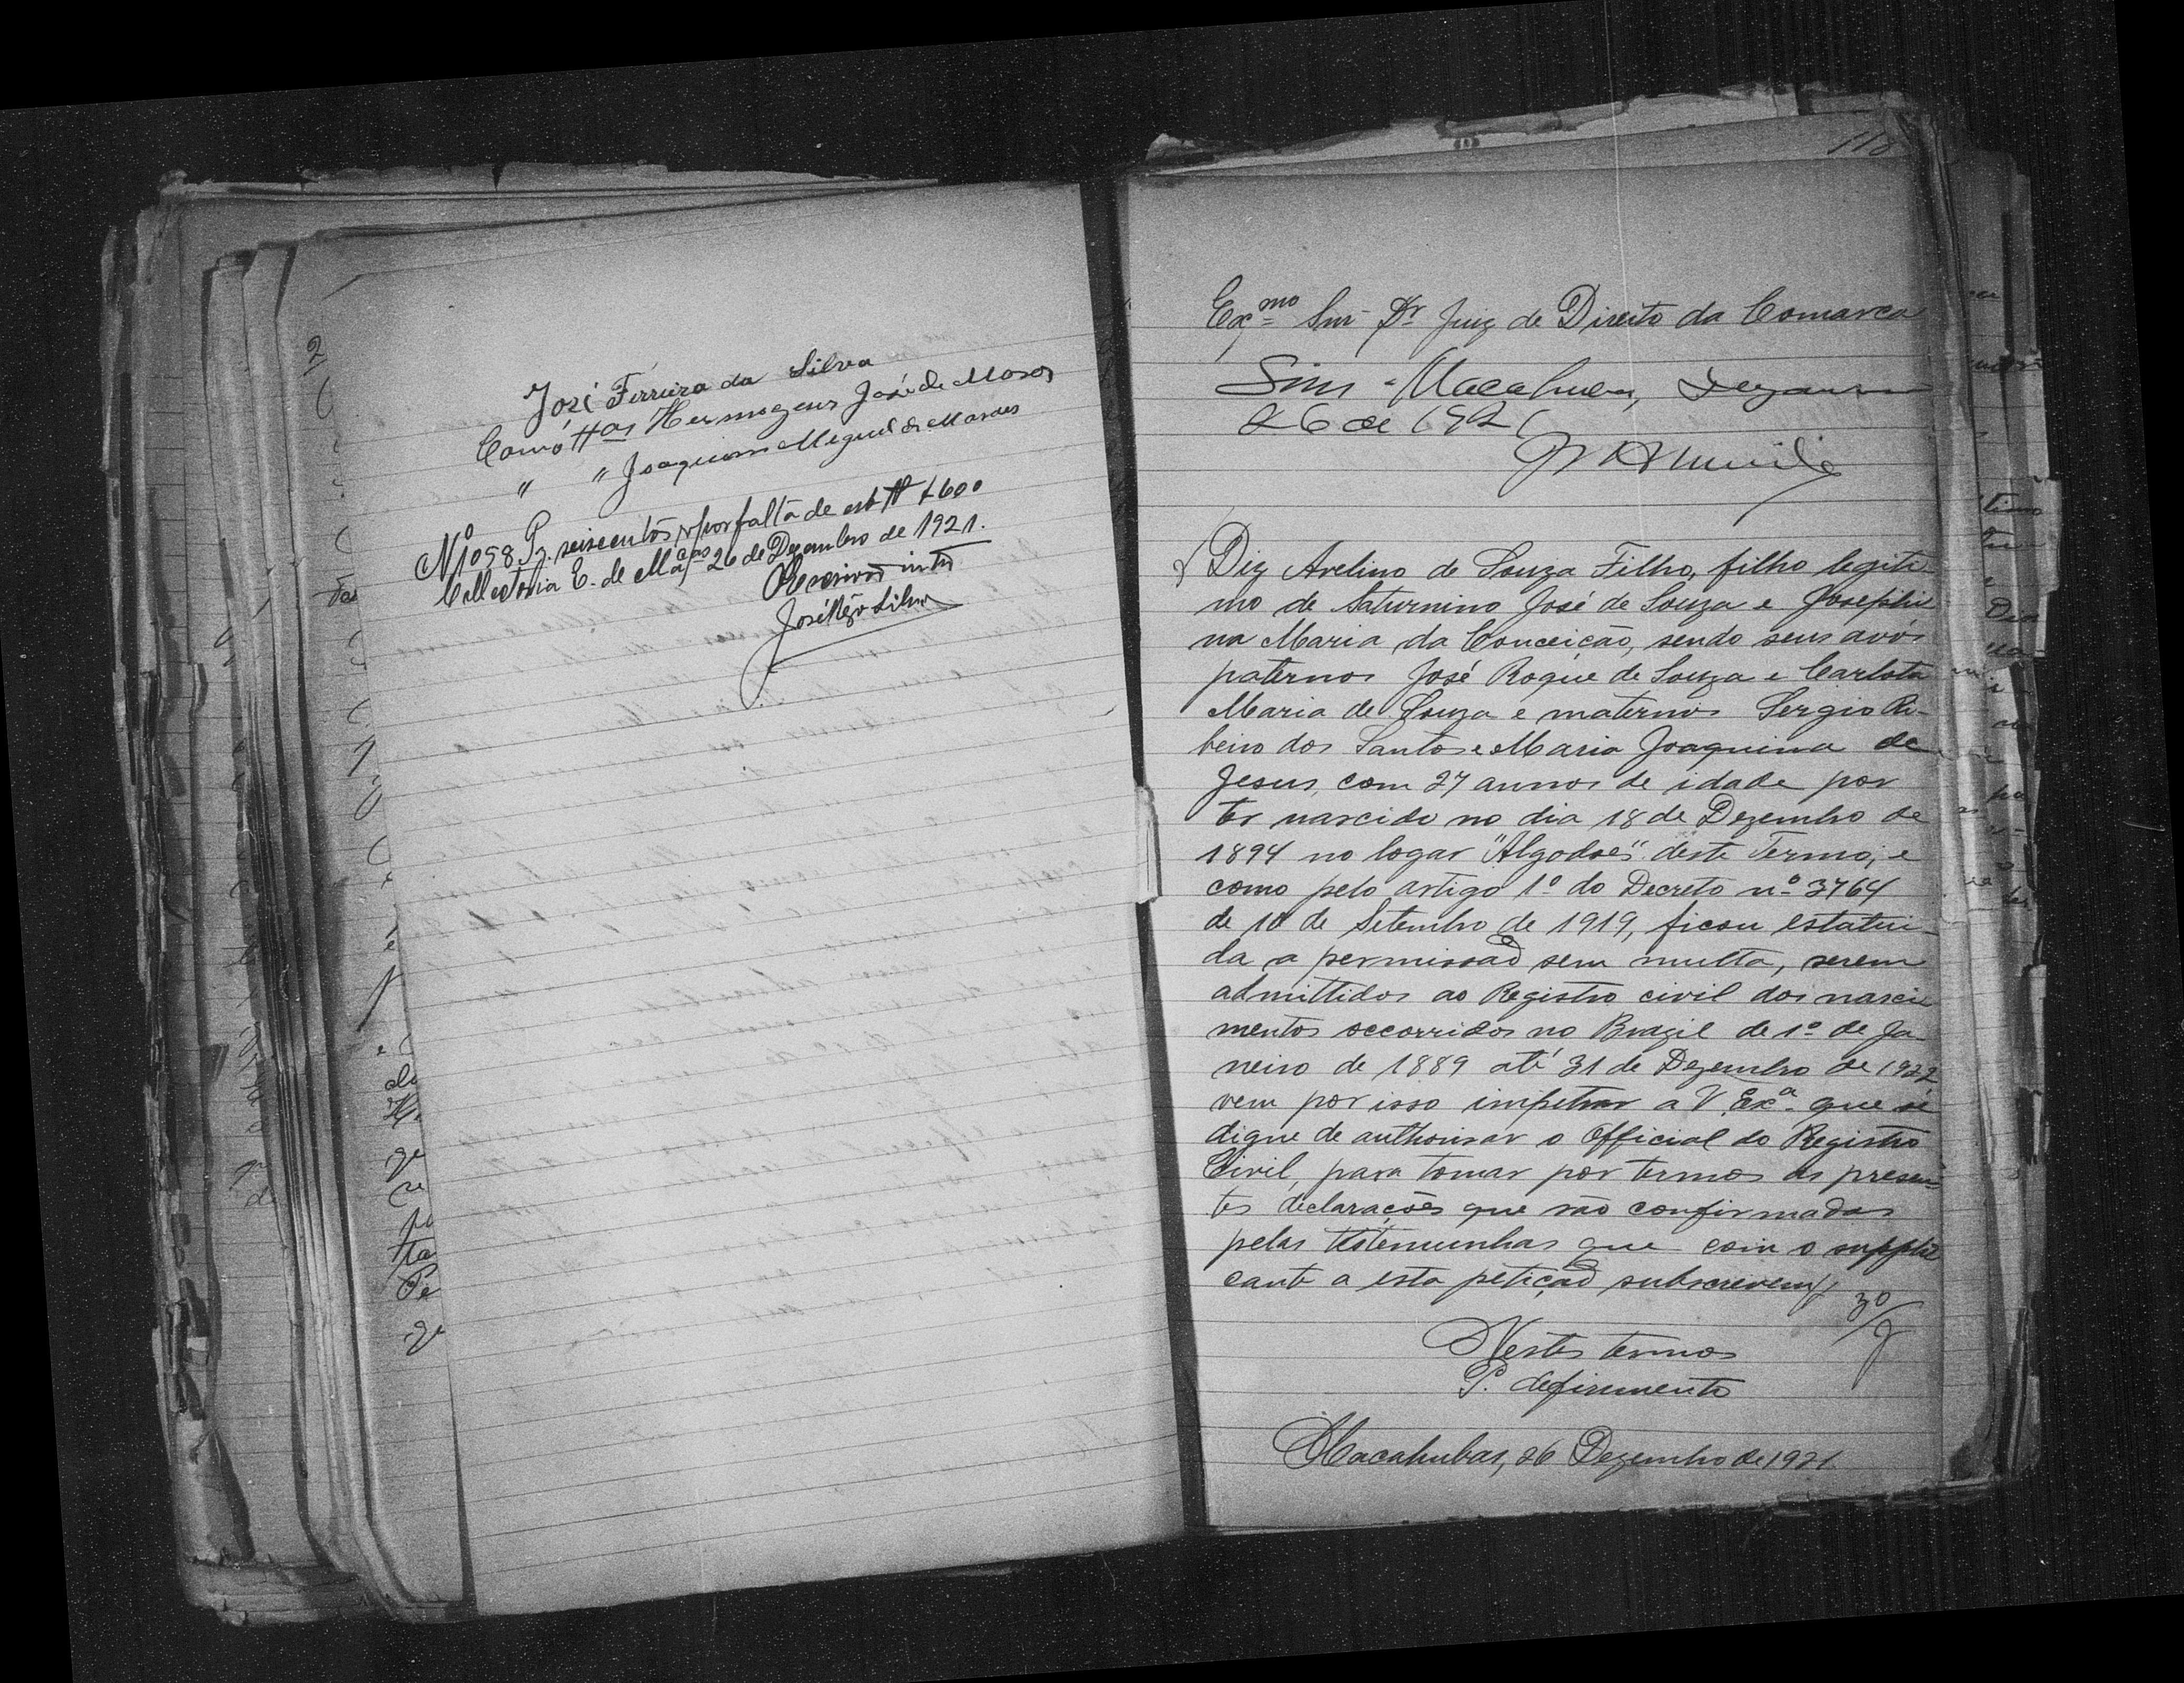 José Ferreira da Silva
Como ttas Hermogens José de Moraes
" " Joaquim Miguel de Moraes
Nº 1058 Pg. seiscentos rs por falta de est. Rs $600
Collectoria E. de Macas 26 de Dezembro de 1921.
Escrivão intº
José Silva
118
Exmo Snr Dr Juiz de Direito da Comarca
Sim. Macahubas, Dezembro
26 de 1921
Diz Avelino de Souza Filho, filho legiti-
mo de Saturnino José de Souza e Josephi
na Maria da Conceição, sendo seus avós
paternos José Roque de Souza e Carlota
Maria de Souza e maternos Sergio Ri-
beiro dos Santos e Maria Joaquina de
Jesus, com 27 annos de idade por
ter nascido no dia 18 de Dezembro de
1894 no logar "Algodões" deste Termo; e
como pelo artigo 1º do Decreto nº 3764
de 10 de Setembro de 1919, ficou estatui-
da a permissão sem multa, serem
admittidos ao Registro civil dos nasci
mentos occorridos no Brazil de 1º de Ja-
neiro de 1889 até 31 de Dezembro de 1922
vem por isso impetrar a V. Exª que se
digne de authorisar o Official do Registro
Civil, para tomar por termos as presen-
tes declarações que são confirmadas
pelas testemunhas que com o suppli
cante a esta petição subscrevem,
Nestes termos
P. deferimento
Macahubas, 26 Dezembro de 1921